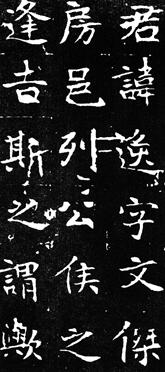 君諱字文傑
房邑列公侯之
逢吉斯之謂歟